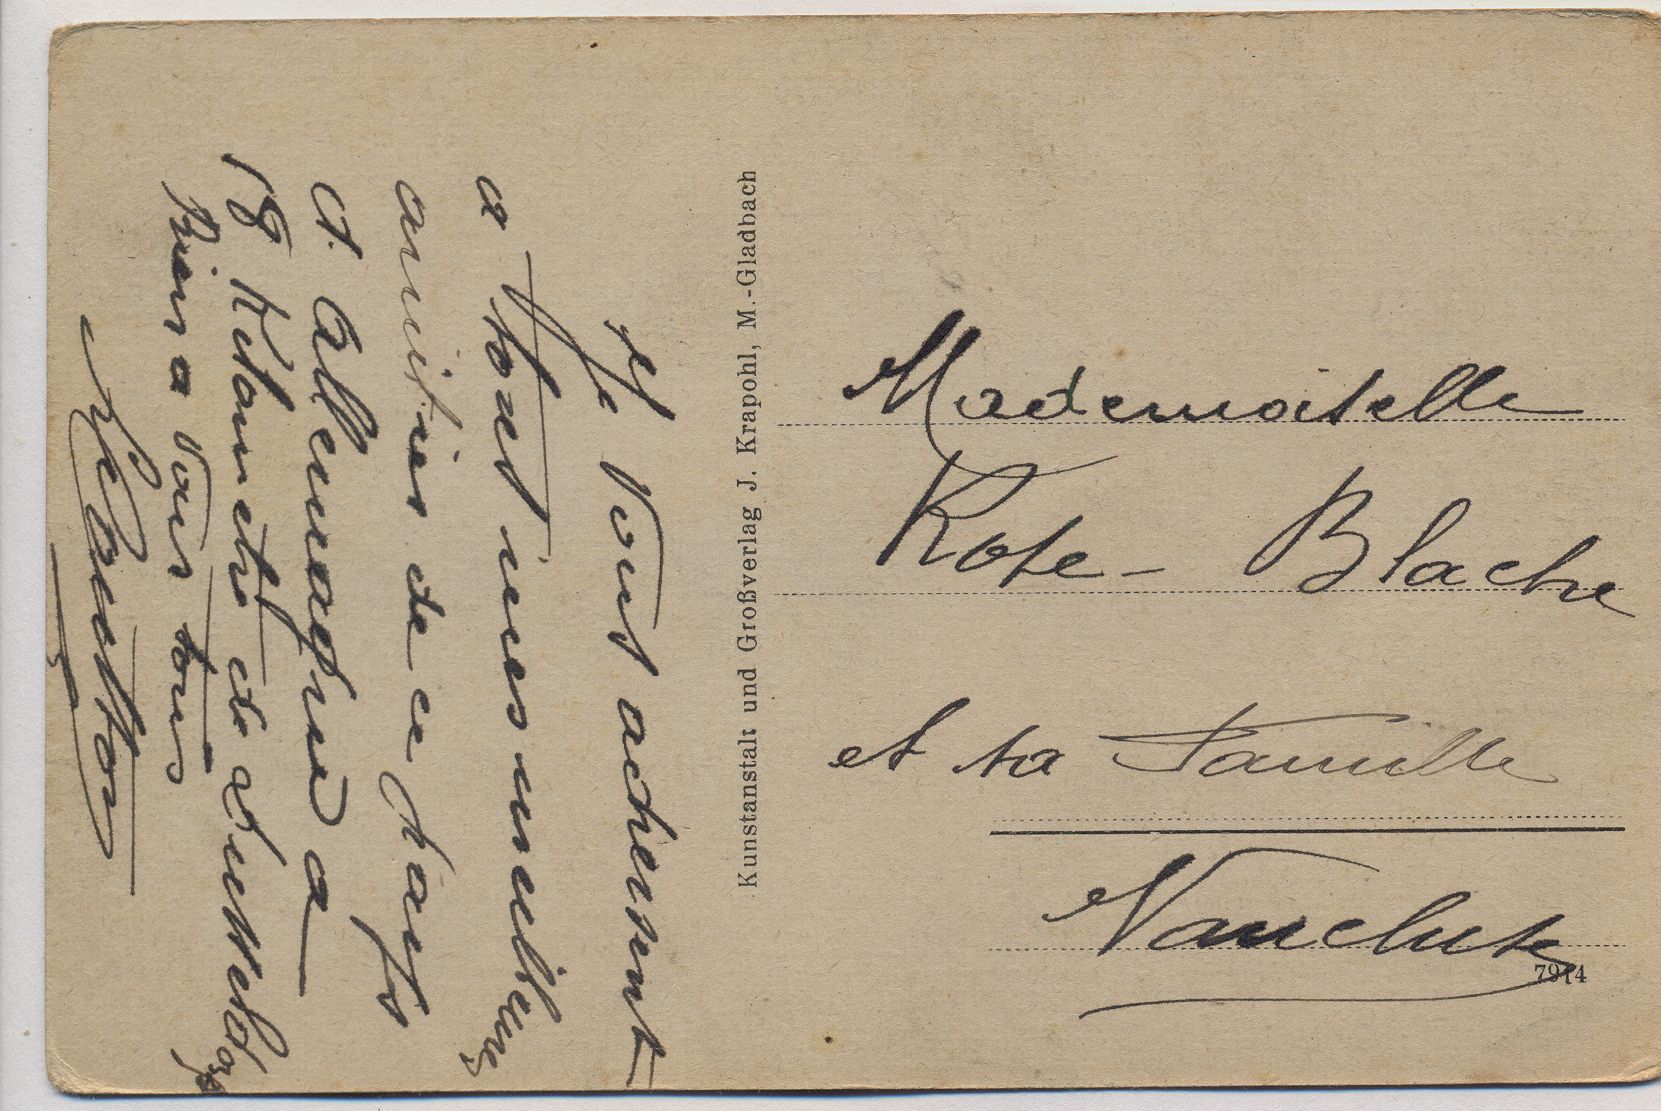 Je vous achemine
a tous mes meilleures
amitiés de ce pays
d. Allemagne a
18 Kilometre de dusseldorf
Bien a vous tous
Kunstanstalt und Großverlag J. Krapohl, M.-Gladbach
Mademoiselle
Rose - Blache
et sa Famille
Vaucluse
7914